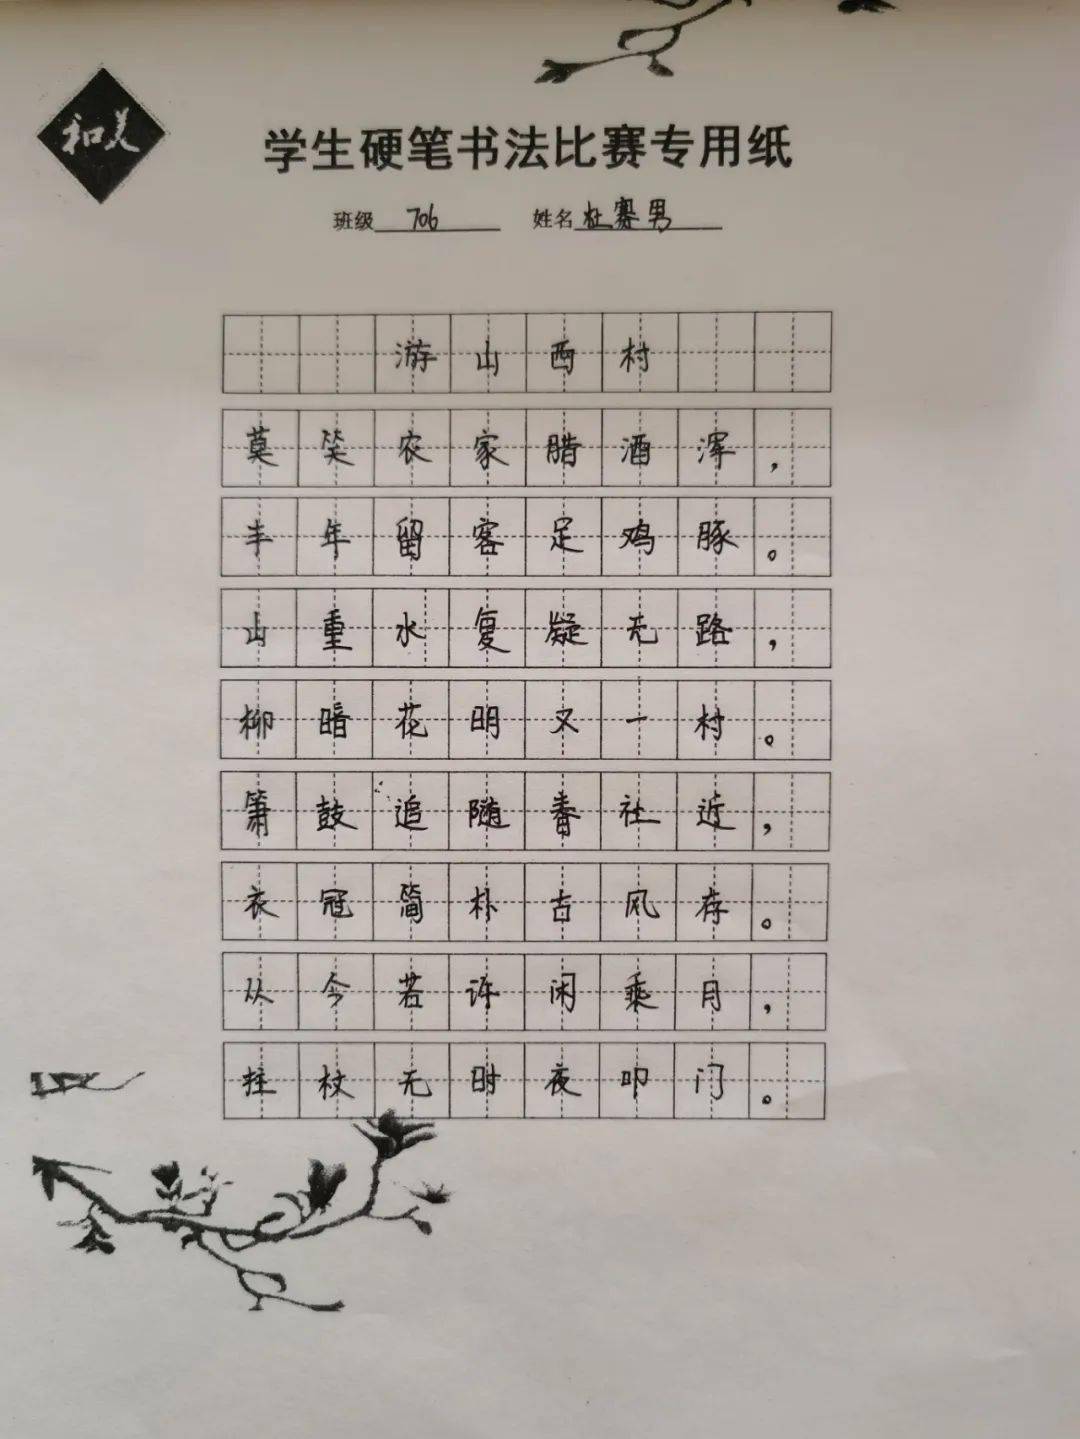 和美
学生硬笔书法比赛专用纸
班级 706 姓名 杜赛男
游山西村
莫笑农家腊酒浑，
丰年留客足鸡豚。
山重水复凝无路，
柳暗花明又一村。
箫鼓追随春社近，
衣冠简朴古风存。
从今若许闲乘月，
拄杖无时夜叩门。